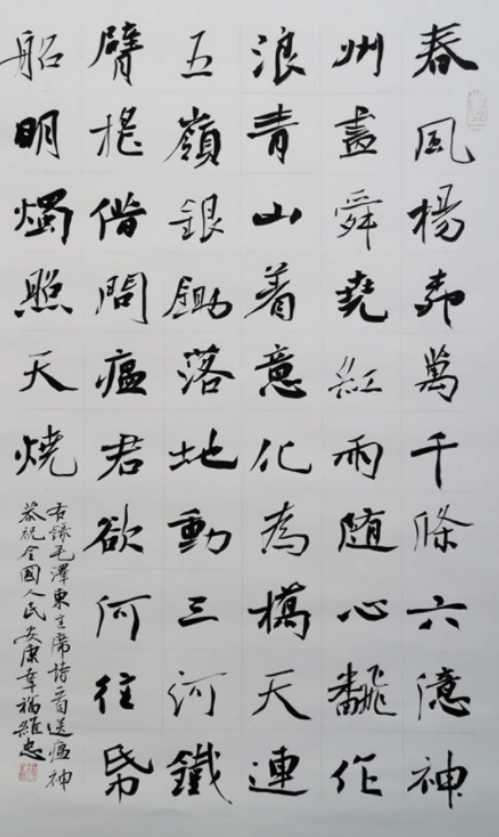 春風楊柳萬千條六億神
州盡舜堯紅雨随心飜作
浪青山着意化為橋天連
五嶺銀鋤落地動三河鐵
臂摇借問瘟君欲何往帋
船明燭照天燒
右録毛澤東主席詩一首送瘟神
恭祝全國人民安康幸福維忠